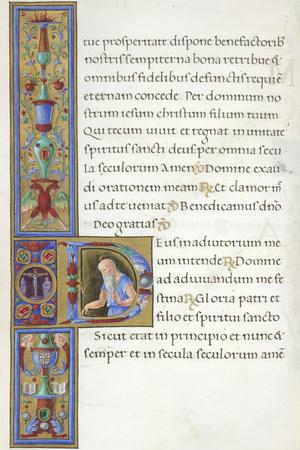 tue prosperitate dispone benefactorib
nostris sempiterna bona retribue &
omnibus fidelibus defunctis requie
eternam concede. Per dominum no
strum iesum christum filium tuum
Qui tecum vivit et regnat in unitate
spiritus sancti deus per omnia secu
la seculorum Amen Domine exau
di orationem meam R Et clamor m
us ad te veniat Benedicamus dño
Deo gratias
Deus in adiutorium me
um intende R Domine
ad adiuvandum me fe
stina R Gloria patri et
filio et spiritui sancto
Sicut erat in principio et nunc &
semper et in secula seculorum amẽ